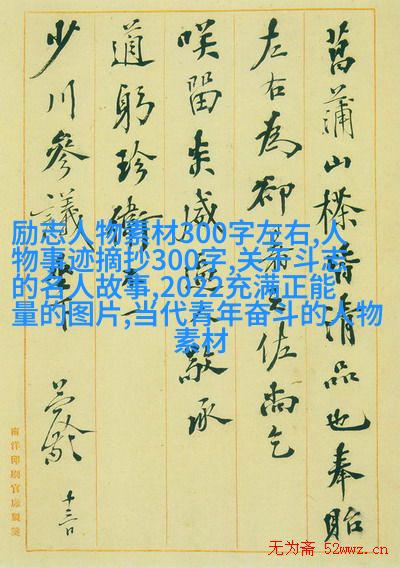 菖蒲山皆清品也奉貽
左右為卻暑之佐尚乞
咲留敬承
道躬珍衛
少川參議
十三日
南洋印刷官廠製箋
励志人物素材300字左右,人
物事迹摘抄300字,关于奋斗
的名人故事,2022充满正能
量的图片,当代青年奋斗的人物
素材
无为斋 52wwz.cn